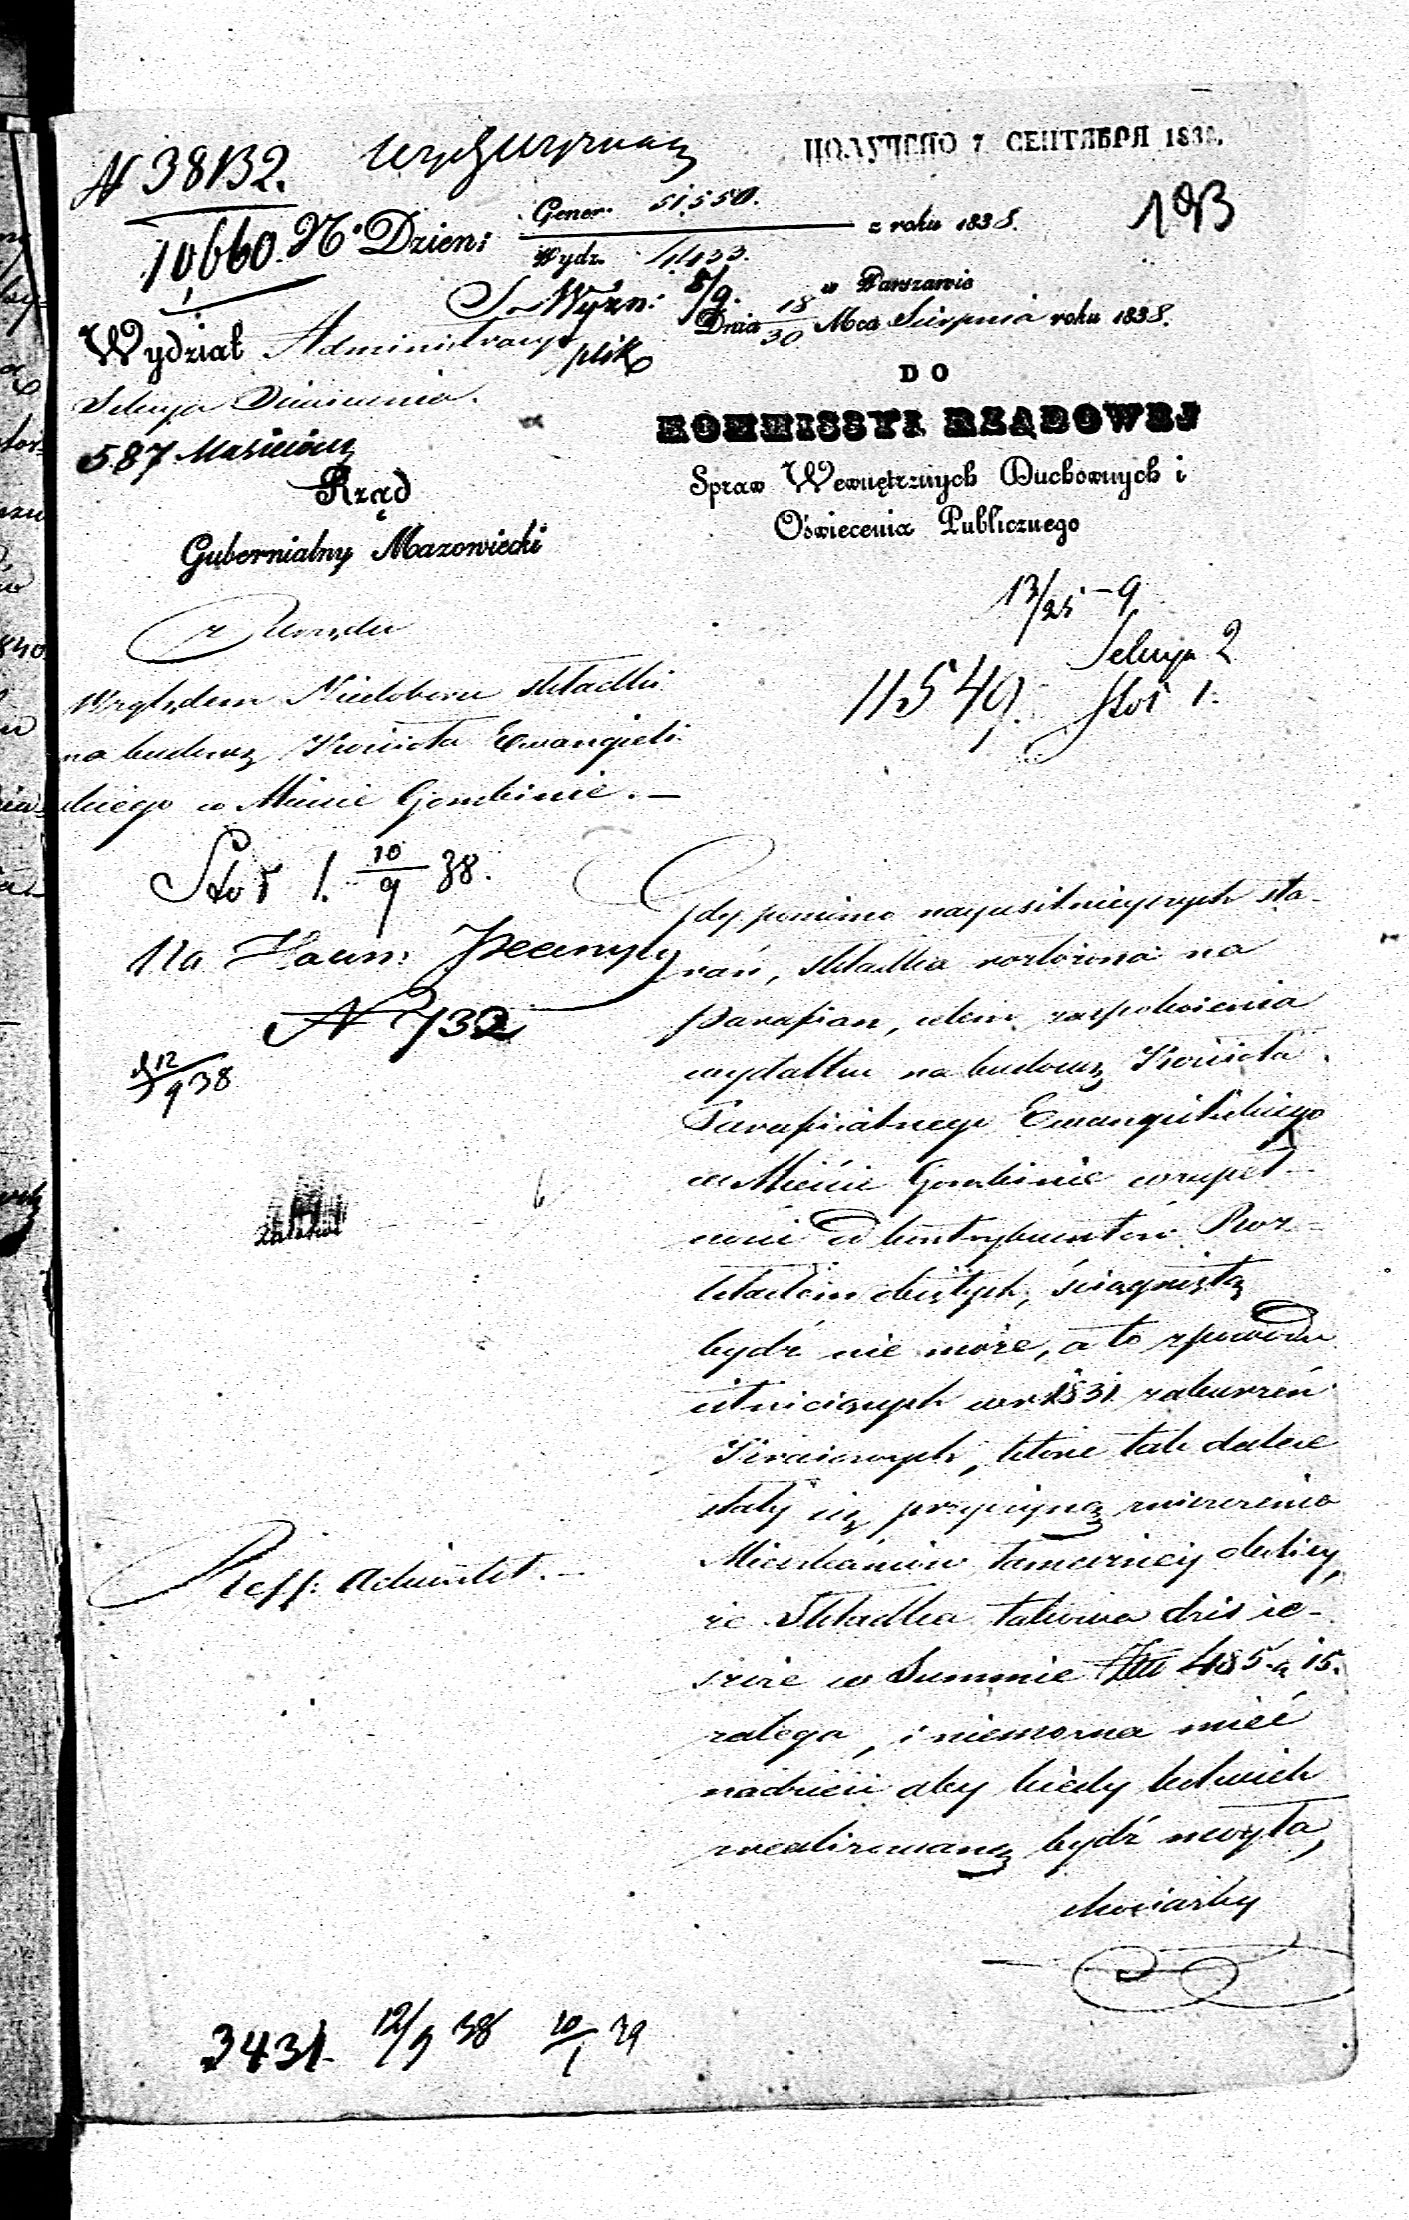 N 38132.
ПОЛУЧЕНО 7 СЕНТЯБРЯ 183
193
10,660. Nº Dzien: Gener. 51,550. z roku 1838.
Wydz.
w Warszawie
Dnia 18/30 Mca Sierpnia roku 1838.
Wydział Administracyi
plik
Sekcya
587
Rząd
Gubernialny Mazowiecki
DO
KOMMISSYI RZĄDOWEJ
Spraw Wewnętrznych Duchownych i
Oświecenia Publicznego
13/25 - 9
Sekcya 2
11549. Stół 1.
z Urzędu
Względem Niedoboru składki
na budowę Kościoła Ewangieli-
ckiego w Mieście Gombinie. —
Stół 1. 10/9 38.
Na
N 732
12/9 38
Gdy pomimo nayusilnieyszych sta-
rań, składka rozłożona na
Parafian, celem zaspokoienia
wydatku na budowę Kościoła
Parafialnego Ewangielickiego
w Mieście Gombinie zupeł-
nie od kontrybuentów Roz-
kładem obiętych, ściągniętą
bydź nie może, a to z powodu
istnieiących w r 1831 zaburzeń
Kraiowych, które tak dalece
stały się przyczyną zniszczenia
Mieszkańców tameczney okolicy,
że Składka takowa dziś ie-
szcze w Summie 485 15.
zalega, i niemożna mieć
nadziei aby kiedy kolwiek
zrealizowaną bydź mogła,
chociażby
Reff: Adiunkt. —
3431. 12/9 38 10/1 39